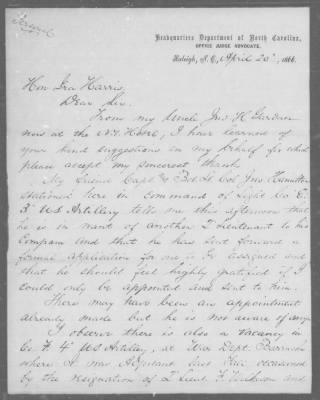 Headquarters Department of North Carolina,
OFFICE JUDGE ADVOCATE,
Raleigh, N. C., April 20", 1866.
Hon Ira Harris,
Dear Sir.
From my Uncle Jno H. Gardner
now at the N.Y. Hotel, I have learned of
your kind suggestions in my behalf for which
please accept my sincerest thanks
My friend Capt & Bvt Lt Col Jno Hamilton
stationed here in command of Light Co E.
3" US Artillery tells me this afternoon that
he is in want of another 2 Lieutenant to his
Company and that he has sent forward a
formal application for one to be assigned and
that he should feel highly gratified if I
could only be appointed and sent to him.
There may have been an appointment
already made but he is not aware of any.
I observe there is also a vacancy in
Co F. 4" US Artillery, at War Dept. Barracks
where I was Adjutant last Fall occasioned
by the resignation of 2 Lieut F. Wilkinson and